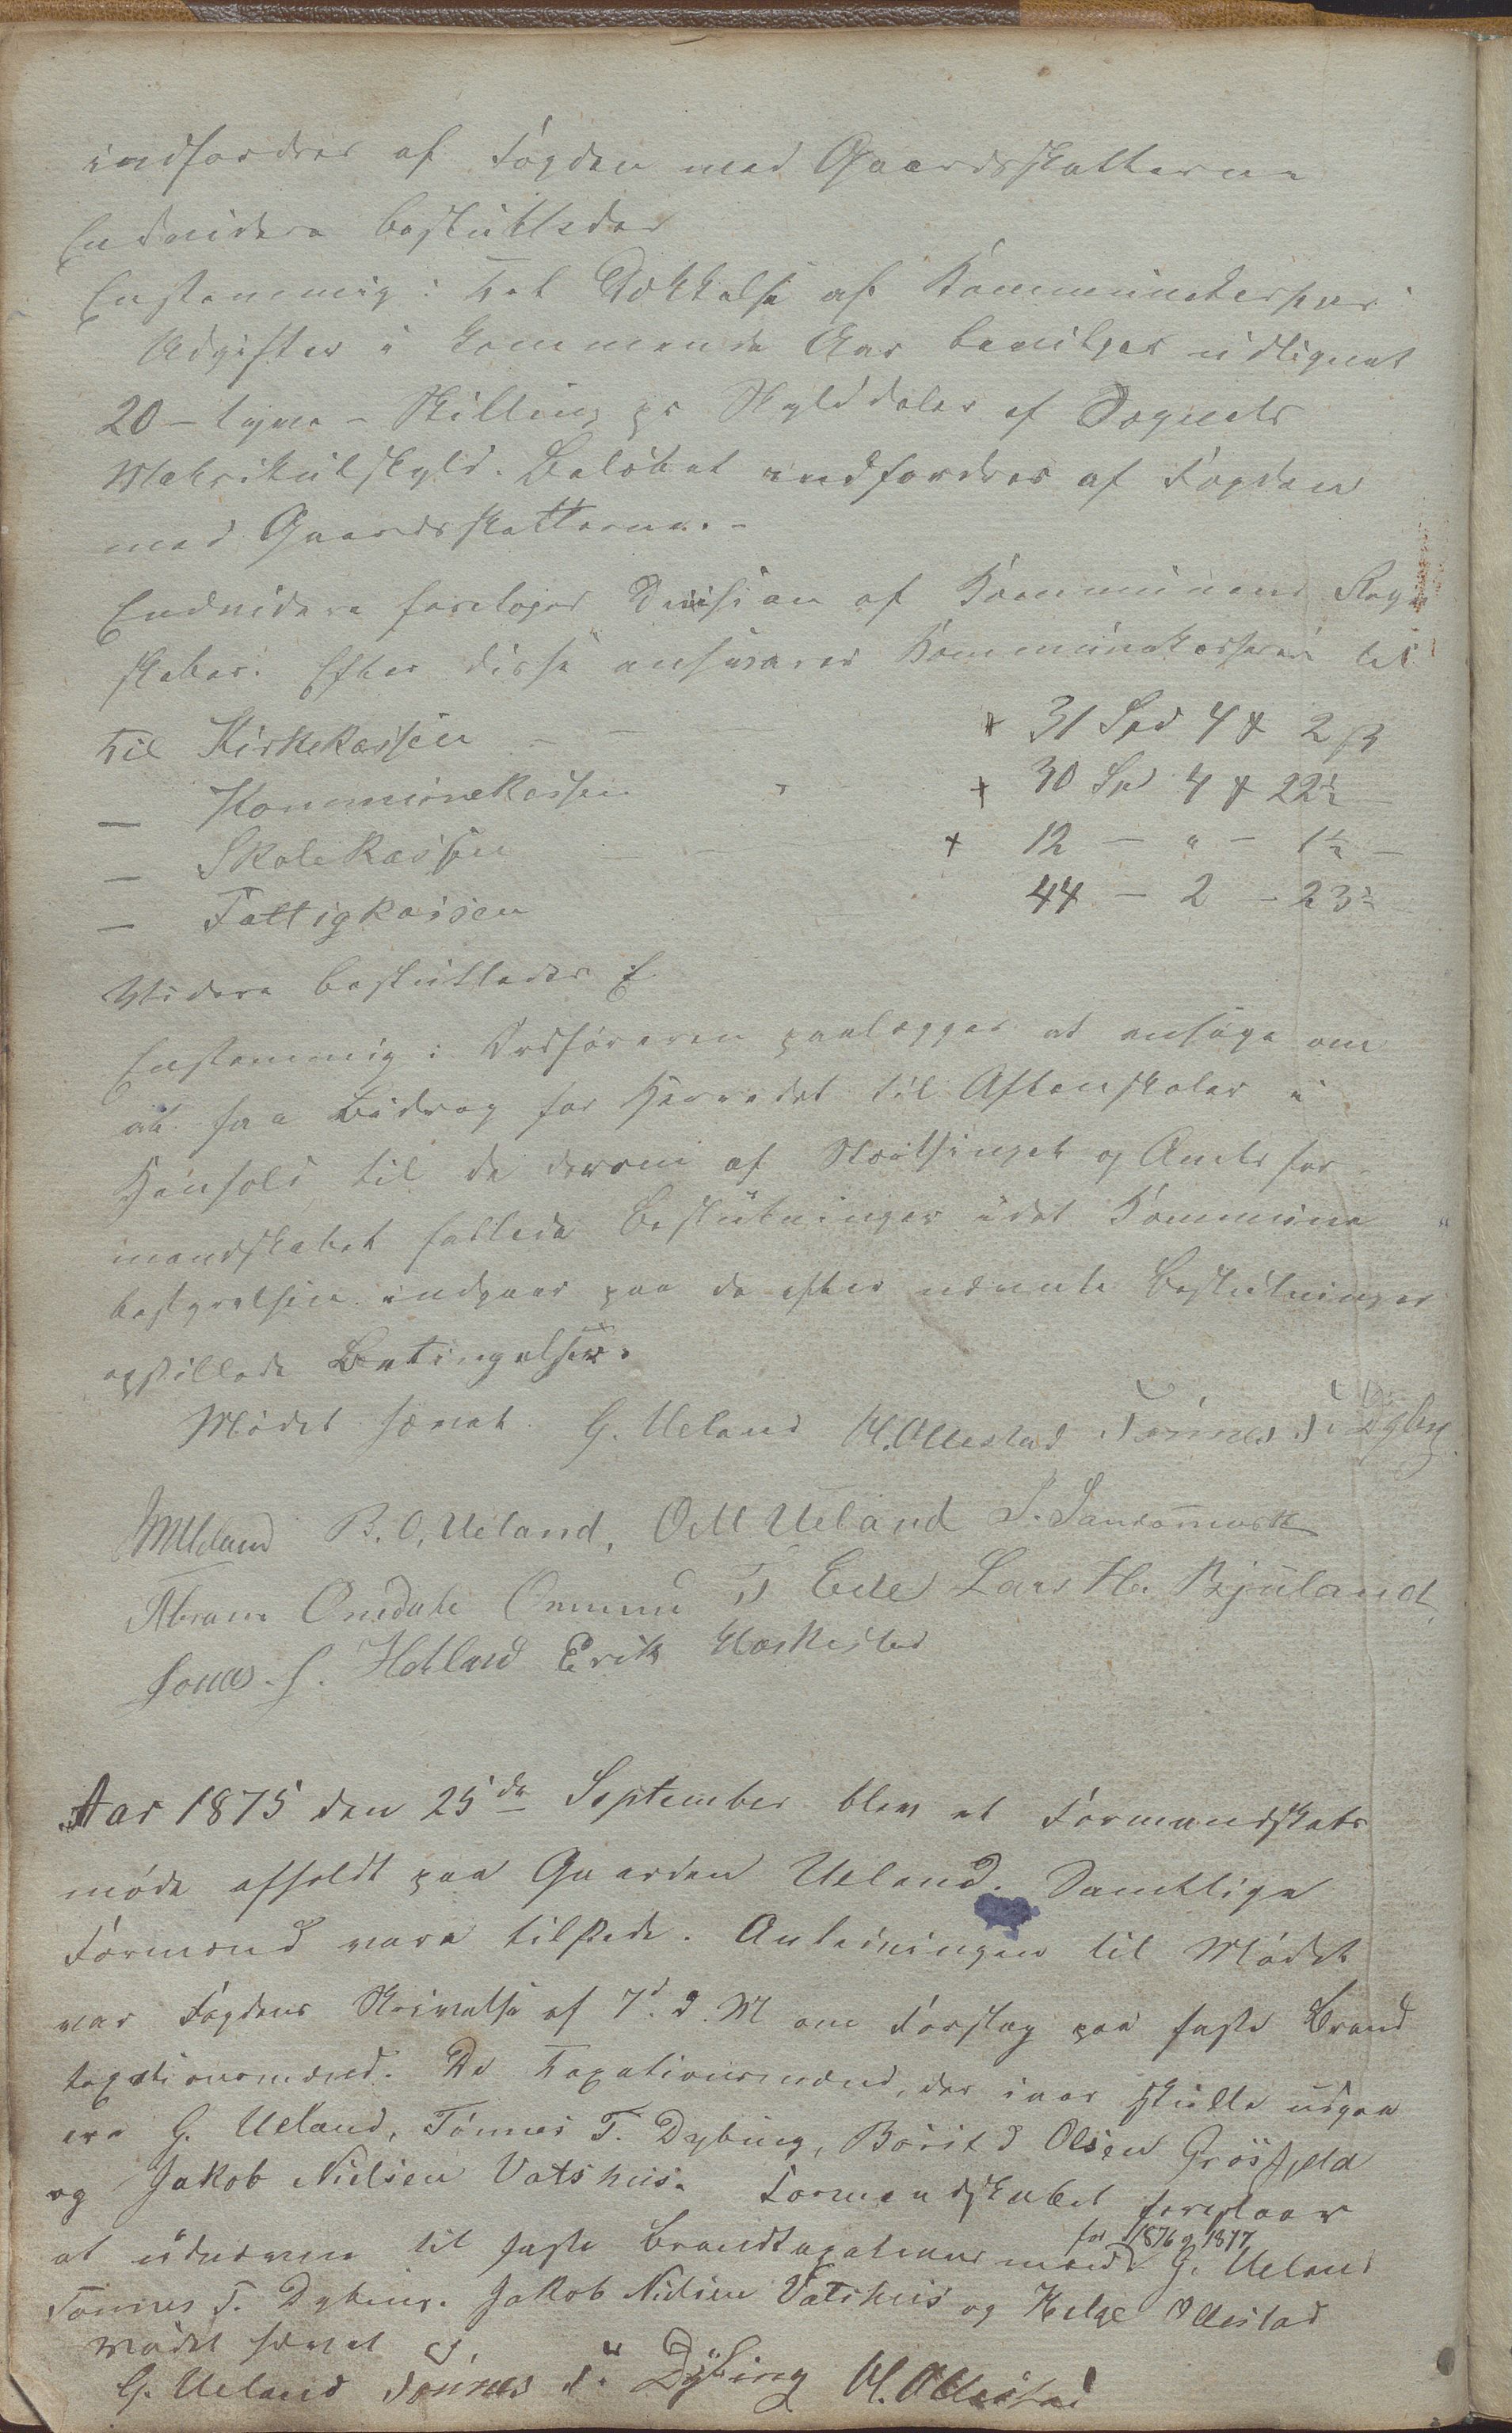 indfordres af Fogden med Gaardsskatterne
Endvidere besluttedes
Enstemmig: Til Dækkelse af Kommunekassens
Udgifter i kommende Aar bevilges udlignet
20 – tyve – Skilling pr Skylddaler af Sognets
Matrikulskyld. Beløbet indfordres af Fogden
med Gaardsskatterne. –
Endvidere foretoges Decision af Kommunens Regn
skaber. Efter disse ansvarer Kommunekasserer til
til Kirkekassen – – + 31 Spd 4 ort 2 ß
– Kommunekassen + 30 Spd 4 ort 22½ –
– Skolekassen – – + 12 – " – 1½ –
– Fattigkassen 44 – 2 – 23½
Videre besluttedes
Enstemmig: Ordføreren paalægges at ansøge om
at faa Bidrag for Herredet til Aftenskoler i
Henhold til de derom af Storthinget og Amtsfor-
mandskabet fattede Beslutninger idet Kommune
bestyrelsen indgaar paa de efter nævnte Beslutninger
opstillede Betingelser.
Mødet hævet. G. Ueland H. Ollestad Tønnes T. Dybing
B. O. Ueland, O M Ueland
Abram Omdahl Ommund T Eide Lars Ha. Bjuland
Jonas. S. Hetland Erik Haskestad
Aar 1875 den 25de September blev et Formandskabs
møde afholdt paa Gaarden Ueland. Samtlige
Formænd vare tilstede. Anledningen til Mødet
var Fogdens Skrivelse af 7d. d. M om Forslag paa faste Brand
taxationsmænd. De Taxationsmænd, der iaar skulle udgaa
ere G. Ueland, Tønnes T. Dybing, Børild Olsen Grøsfjeld
og Jakob Nielsen Vatshus. Formandskabet foreslaar
at udnævne til faste Brandtaxationsmænd for 1876 og 1877 G. Ueland
Tønnes T. Dybing. Jakob Nielsen Vatshus og Helge Ollestad
Mødet hævet
G. Ueland Tønnes T. Dybing H. Ollestad